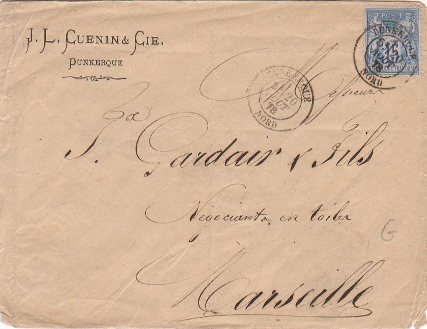 J. L. CUENIN & CIE.
DUNKERQUE
DUNKERQUE
NORD
15
DUNKERQUE
NORD
Messieurs
J. Gardair & Fils
Négociants en toiles
Marseille
G